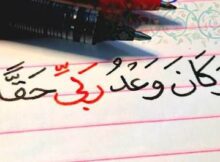 وَكَانَ وَعْدُ رَبِّي حَقًّا